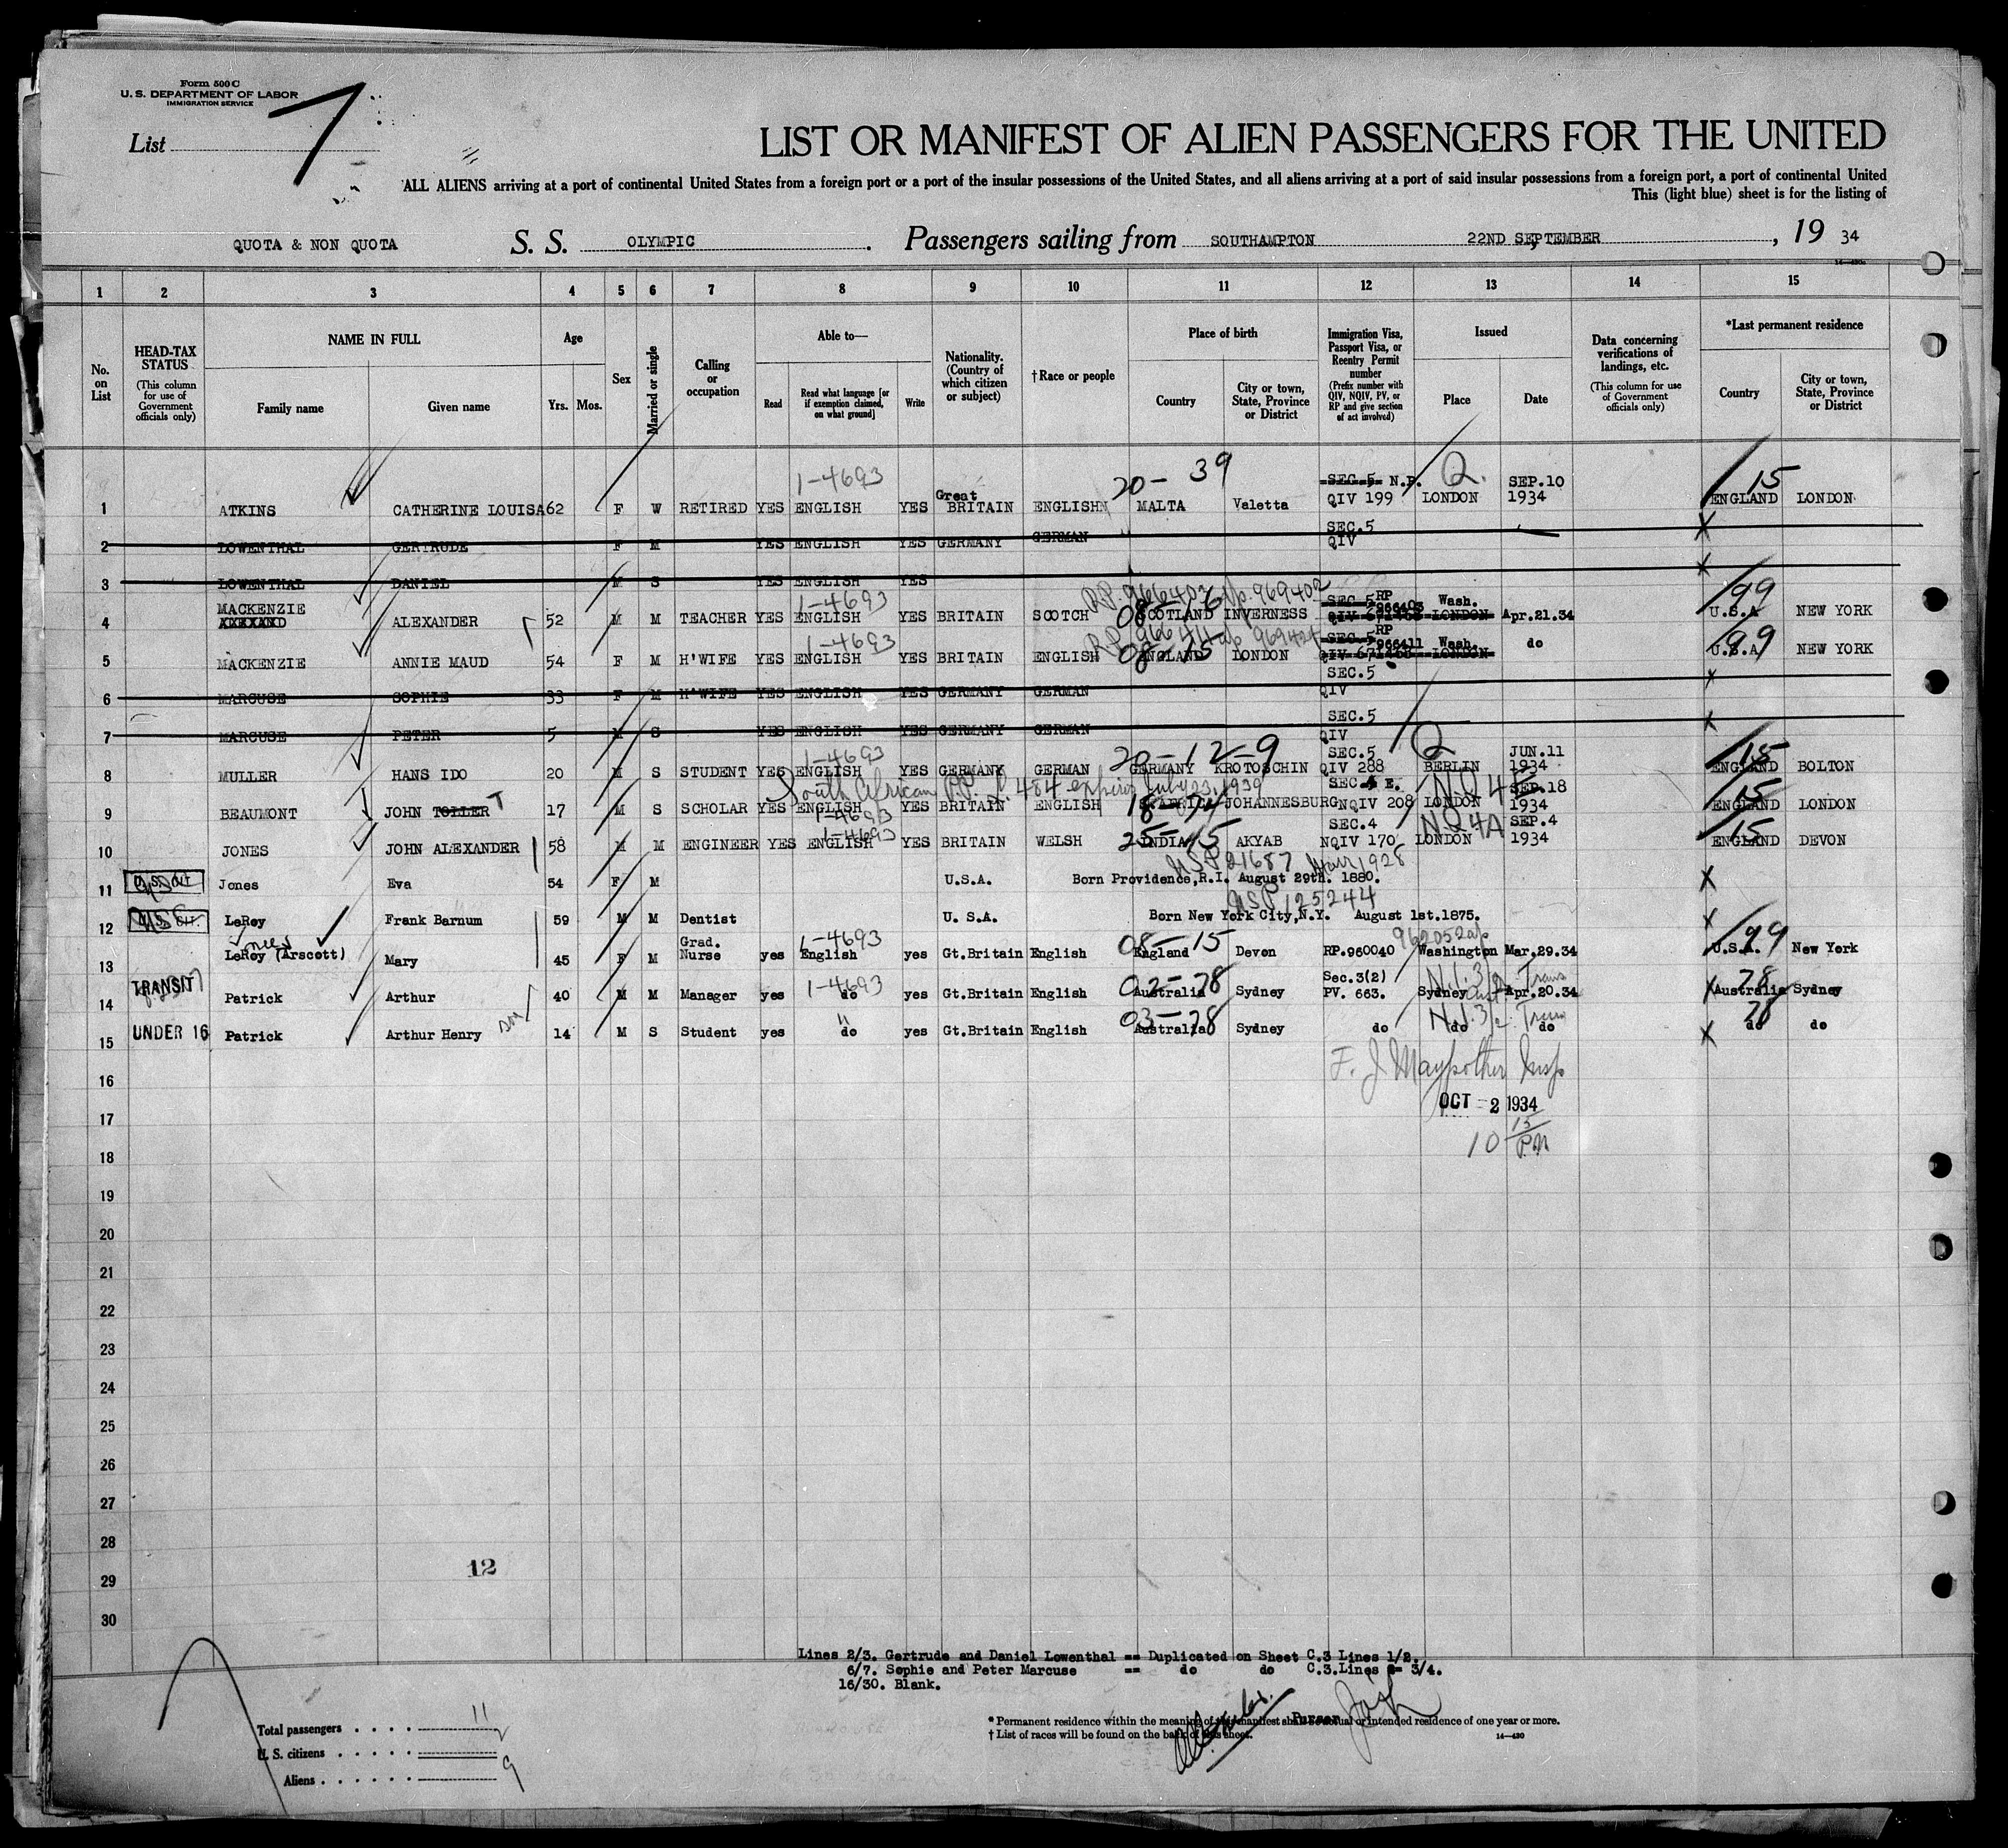 Form 500 C
U. S. DEPARTMENT OF LABOR
IMMIGRATION SERVICE
List 7
LIST OR MANIFEST OF ALIEN PASSENGERS FOR THE UNITED
ALL ALIENS arriving at a port of continental United States from a foreign port or a port of the insular possessions of the United States, and all aliens arriving at a port of said insular possessions from a foreign port, a port of continental United
This (light blue) sheet is for the listing of
QUOTA & NON QUOTA S. S. OLYMPIC . Passengers sailing from SOUTHAMPTON 22ND SEPTEMBER , 19 34
1 2 3 4 5 6 7 8 9 10 11 12 13 14 15
No. on List
HEAD-TAX STATUS
(This column for use of Government officials only)
NAME IN FULL
Family name Given name
Age
Yrs. Mos.
Sex
Married or single
Calling or occupation
Able to—
Read Read what language [or if exemption claimed, on what ground] Write
Nationality. (Country of which citizen or subject)
†Race or people
Place of birth
Country City or town, State, Province or District
Immigration Visa, Passport Visa, or Reentry Permit number
(Prefix number with QIV, NQIV, PV, or RP and give section of act involved)
Issued
Place Date
Data concerning verifications of landings, etc.
(This column for use of Government officials only)
*Last permanent residence
Country City or town, State, Province or District
1-4693 20- 39 SEC.5 N.P. Q. SEP.10 15
1 ATKINS CATHERINE LOUISA 62 F W RETIRED YES ENGLISH YES Great BRITAIN ENGLISH MALTA Valetta QIV 199 LONDON 1934 ENGLAND LONDON
2 LOWENTHAL GERTRUDE F M YES ENGLISH YES GERMANY GERMAN SEC.5 QIV X
3 LOWENTHAL DANIEL M S YES ENGLISH YES X
1-4693 RP. 966403 969402 SEC.5 RP 966403 Wash. 99
4 MACKENZIE ALEXANDER 52 M M TEACHER YES ENGLISH YES BRITAIN SCOTCH 08-16 SCOTLAND INVERNESS LONDON Apr.21.34 U.S.A NEW YORK
1-4693 RP 966411 SEC.5 RP 966411 Wash. do 99
5 MACKENZIE ANNIE MAUD 54 F M H'WIFE YES ENGLISH YES BRITAIN ENGLISH 08-15 ENGLAND LONDON LONDON U.S.A NEW YORK
6 MARCUSE SOPHIE 33 F M H'WIFE YES ENGLISH YES GERMANY GERMAN SEC.5 QIV X
7 MARCUSE PETER 5 M S YES ENGLISH YES GERMANY GERMAN SEC.5 QIV X
1-4693 20-12-9 SEC.5 Q JUN.11 15
8 MULLER HANS IDO 20 M S STUDENT YES ENGLISH YES GERMANY GERMAN GERMANY KROTOSCHIN QIV 288 BERLIN 1934 ENGLAND BOLTON
South African PP. 484 expires July 23, 1939 SEC.4 E. NQ4E SEP.18 15
9 BEAUMONT JOHN TOLLER T 17 M S SCHOLAR YES ENGLISH YES BRITAIN ENGLISH 18-74 S.AFRICA JOHANNESBURG NQIV 208 LONDON 1934 ENGLAND LONDON
1-4693 1-4693 SEC.4 NQ4A SEP.4 15
10 JONES JOHN ALEXANDER 58 M M ENGINEER YES ENGLISH YES BRITAIN WELSH 25-15 INDIA AKYAB NQIV 170 LONDON 1934 ENGLAND DEVON
USP 21687 Mar 1928
11 U.S. CIT. Jones Eva 54 F M U.S.A. Born Providence,R.I. August 29th. 1880. X
USP 125244
12 U.S. CIT. LeRoy Frank Barnum 59 M M Dentist U. S. A. Born New York City,N.Y. August 1st.1875. X
nee 1-4693 08-15 962052 99
13 LeRoy (Arscott) Mary 45 F M Grad. Nurse yes English yes Gt.Britain English England Devon RP.960040 Washington Mar.29.34 U.S.A. New York
TRANSIT 1-4693 03-78 Sec.3(2) N.I. 3/2 Trans 78
14 Patrick Arthur 40 M M Manager yes do yes Gt.Britain English Australia Sydney PV. 663. Sydney Apr.20.34 Australia Sydney
03-78 N.I. 3/2 Trans 78
15 UNDER 16 Patrick Arthur Henry 14 M S Student yes do yes Gt.Britain English Australia Sydney do do do do do X
16 F. J Maypother Insp
17 OCT - 2 1934
10 15/P.M
18
19
20
21
22
23
24
25
26
27
28
12
29
30
Lines 2/3. Gertrude and Daniel Lowenthal == Duplicated on Sheet C.3 Lines 1/2.
6/7. Sophie and Peter Marcuse == do do C.3.Lines 3/4.
16/30. Blank.
Purser
* Permanent residence within the meaning of this manifest shall be actual or intended residence of one year or more.
† List of races will be found on the back of this sheet.
14—430
Total passengers . . . . 11
U. S. citizens . . . . . 2
Aliens . . . . . . 9